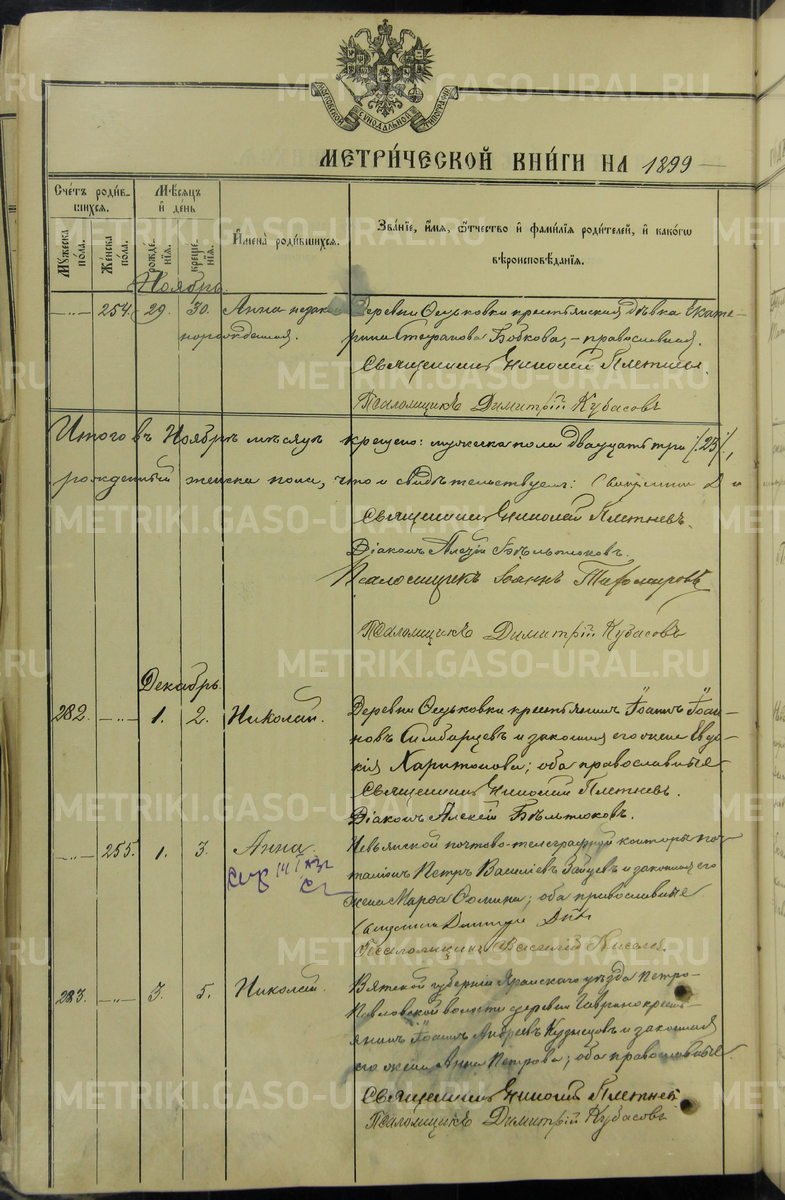 МОСКОВСКОЙ СѴНОДАЛЬНОЙ ТИПОГРАФІИ
МЕТРИ́ЧЕСКОЙ КНИ́ГИ НА 1899
Сче́тъ роди́вшихся.
Мѣ́сяцъ и҆ де́нь
И҆мена̀ роди́вшихся.
Зва́нїе, и҆́мя, ѻ҆́тчество и҆ фами́лїя роди́телей, и҆ како́гѡ
вѣроисповѣ́данїя.
Мꙋ́жеска по́ла.
Же́нска по́ла.
рожде́нїя.
креще́нїя.
Ноябрь.
254. 29. 30. Анна незако-
норожденная.
Деревни Осиновки крестьянская дѣвка Екате-
рина Бобкова, православная.
Священникъ Николай Плетневъ.
Псаломщикъ Димитрій Кубасовъ
Итого въ Ноябрѣ мѣсяцѣ крещено: мужеска пола двадцать три /23/,
женска пола, что и свидѣтельствуемъ:
Священникъ Николай Плетневъ.
Діаконъ Алексій Бѣльтюковъ.
Псаломщикъ Іоаннъ Тихомировъ
Псаломщикъ Димитрій Кубасовъ
Декабрь.
282. 1. 2. Николай.
Деревни Осиновки крестьянинъ Іоаннъ Іоан-
новъ Симбирцевъ и законная его жена Евдо-
кія Харитонова; оба православные.
Священникъ Николай Плетневъ.
Діаконъ Алексій Бѣльтюковъ.
255. 1. 3. Анна.
Невьянской почтово-телеграфной конторы поч-
таліонъ Петръ Василіевъ Зайцевъ и законная его
жена Марѳа Ѳомина; оба православные
Псаломщикъ Василій
283. 3. 5. Николай.
Вятской губерніи Яранскаго уѣзда Петро-
Павловской волости деревни крестья-
янинъ Іоаннъ Андреевъ Кузнецовъ и законная
его жена Анна Петрова; оба православные.
Священникъ Николай Плетневъ
Псаломщикъ Димитрій Кубасовъ
METRIKI.GASO-URAL.RU